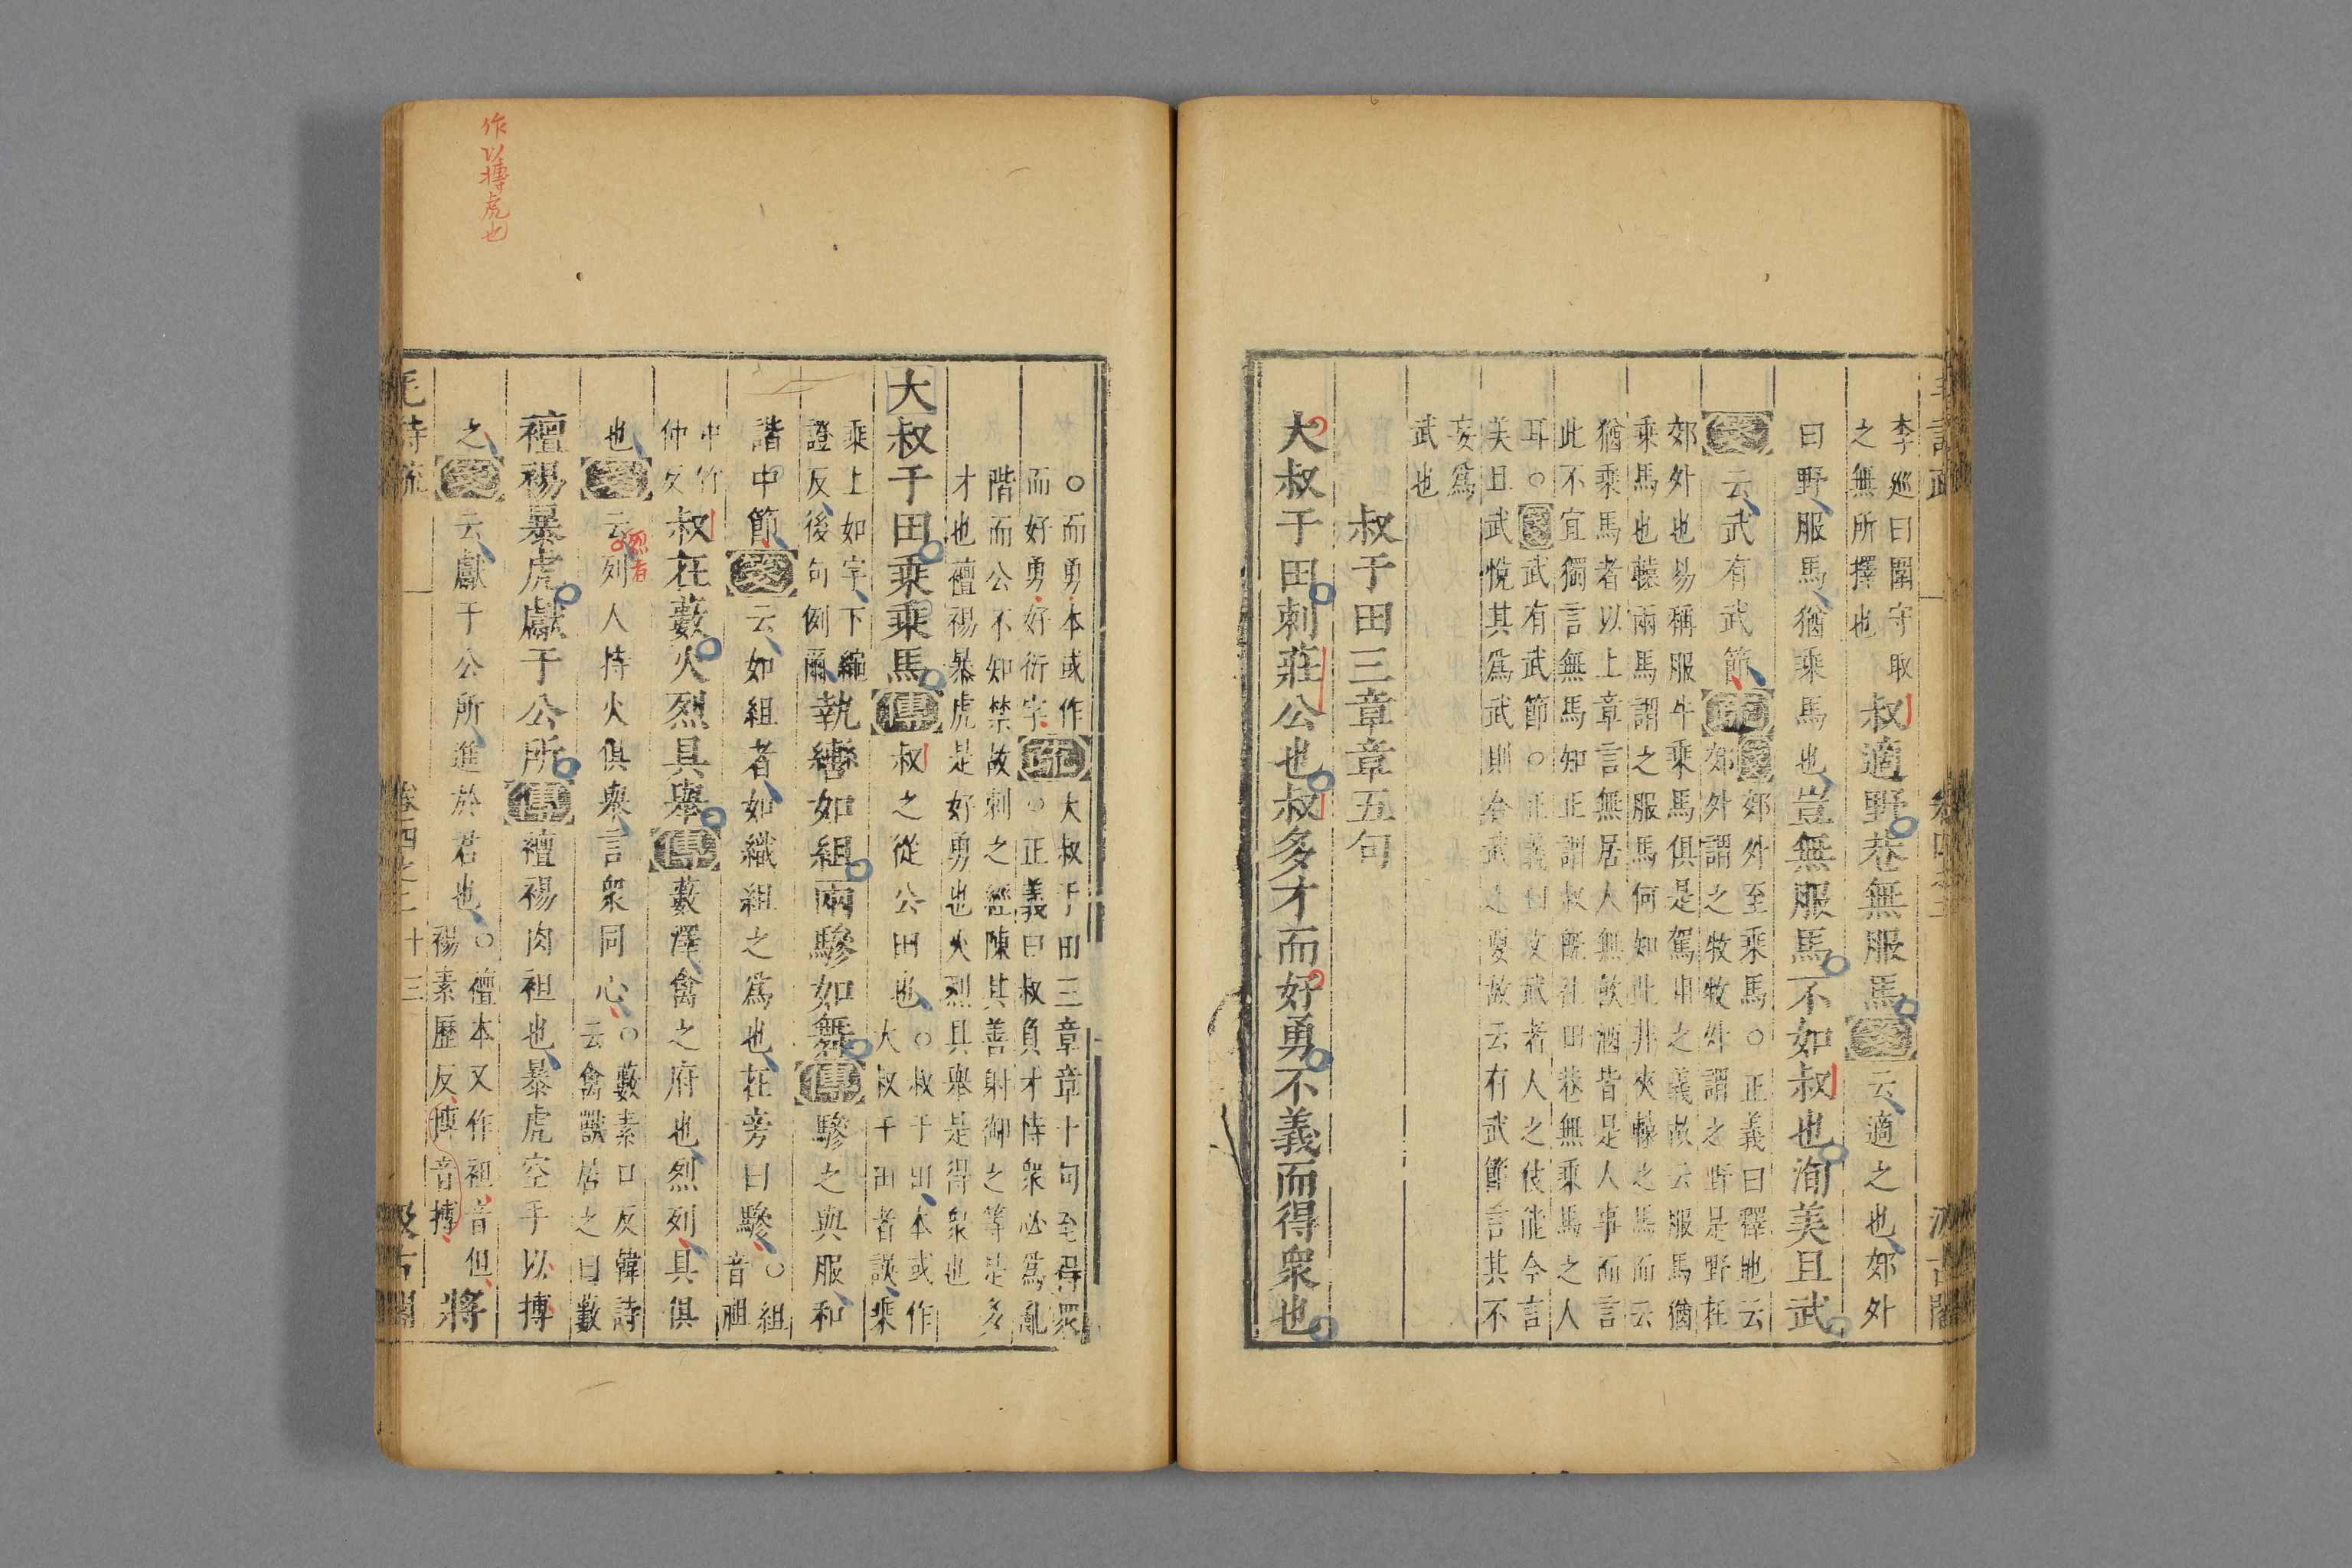 李巡曰閑守取
之無所擇也
叔適野巷無服馬箋云適之也郊外
曰野服馬猶乘馬也豈無服馬不如叔也洵美且武
箋云武有武節疏
箋郊外至乘馬○正義曰釋地云
郊外謂之牧牧外謂之野是野在
郊外也易稱服牛乘馬俱是駕用之義故云服馬猶
乘馬也轅兩馬謂之服馬何知此非夾轅之馬而云
猶乘馬者以上章言無居人無飲酒皆是人事而言
此不宜獨言無馬知正謂叔既往田巷無乘馬之人
耳○箋武有武節○正義曰文武者人之伎能今言
美且武悅其爲武則合武之要故云有武節言其不
妄爲
武也
叔于田三章章五句
大叔于田刺莊公也叔多才而好勇不義而得衆也
○而勇本或作
而好勇好衍字
疏
大叔于田三章章十句至得衆
○正義曰叔負才恃衆必爲亂
階而公不知禁故刺之經陳其善射御之等是多
才也襢裼暴虎是好勇也火烈具舉是得衆也
大叔于田乘乘馬傳叔之從公田也
○叔于田本或作
大叔于田者誤乘
乘上如字下繩
證反後句例爾
執轡如組兩驂如舞傳驂之與服和
諧中節箋云如組者如織組之爲也在旁曰驂
○組
音祖
中竹
仲反
叔在藪火烈具舉傳藪澤禽之府也烈列具俱
也箋云列人持火俱舉言衆同心
烈者
○藪素口反韓詩
云禽獸居之曰藪
襢裼暴虎獻于公所傳襢裼肉袒也暴虎空手以搏
之箋云獻于公所進於君也
○襢本又作袒音但
裼素歷反搏音搏
將
作以搏虎也
毛詩疏
卷四之二
十三
汲古閣